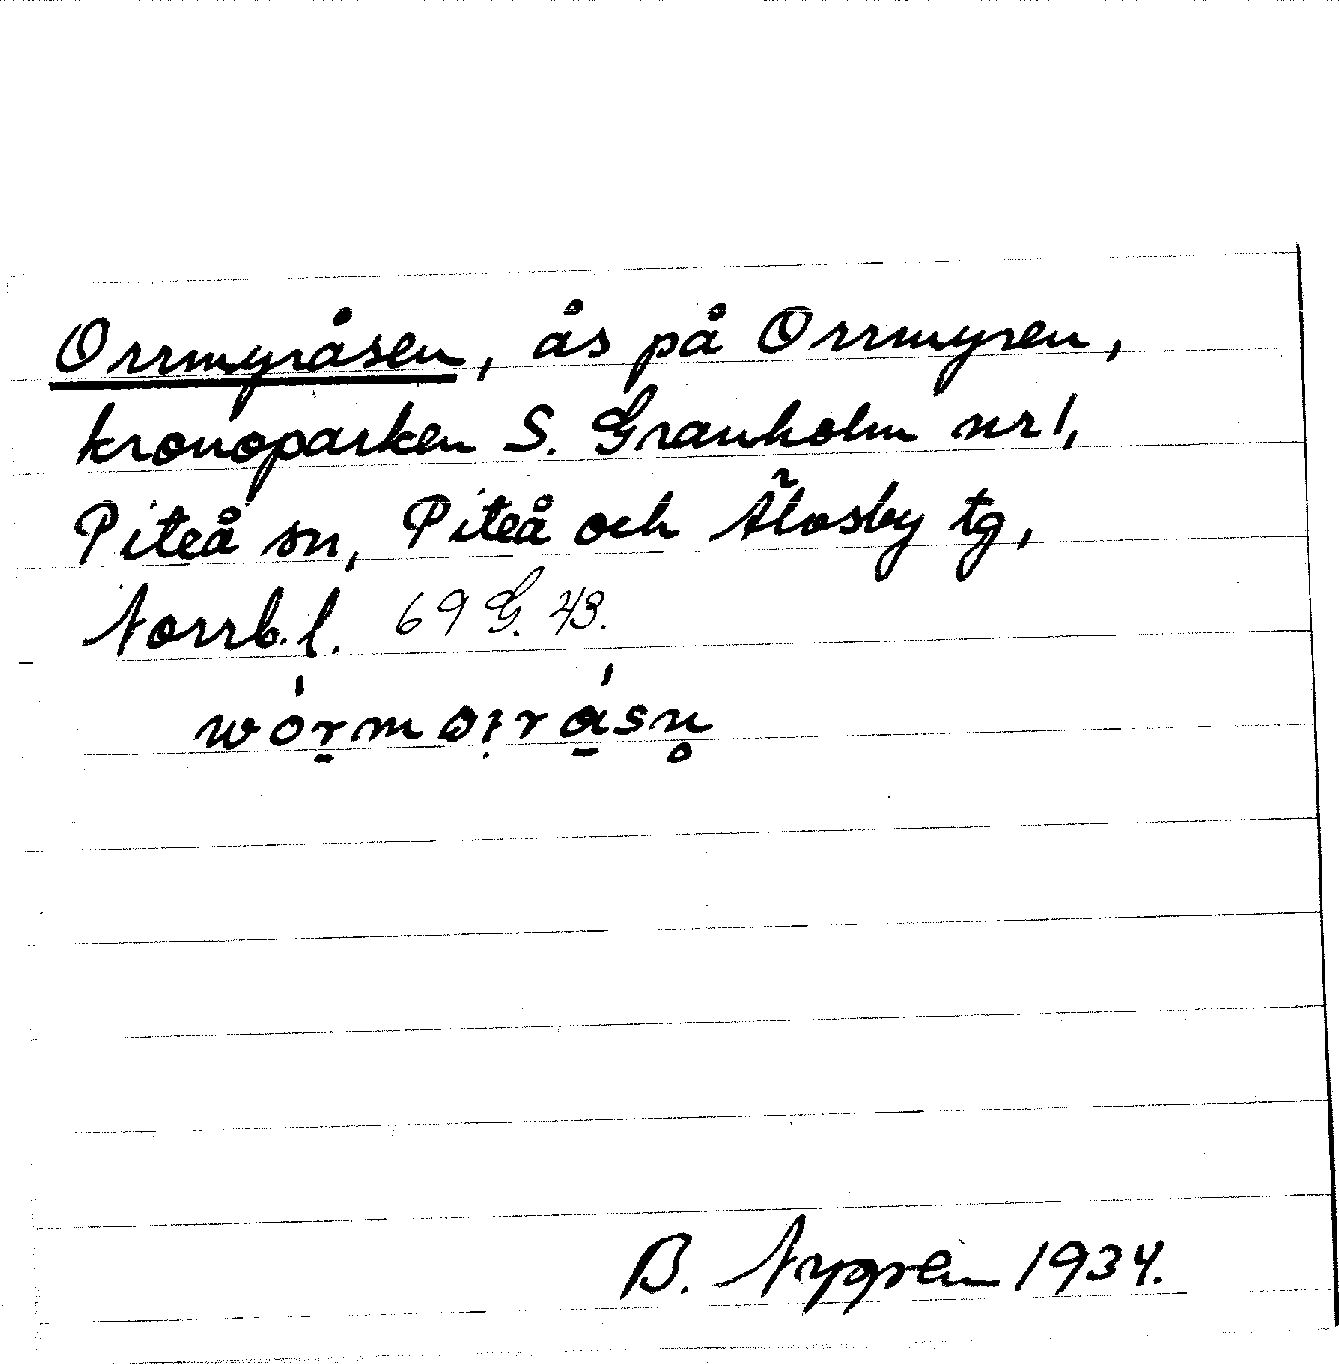 Orrmyråsen, ås på Orrmyren,
kronoparken S. Granholm nr 1,
Piteå sn, Piteå och Älvsby tg,
Norrb. l. 69 G. 43.
B. Nygren 1934.